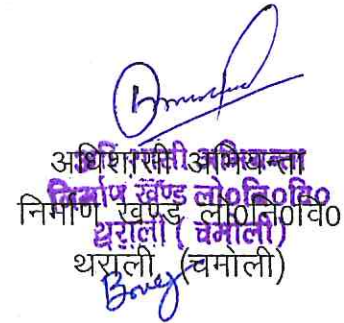 अधिशासी अभियन्ता
निर्माण खण्ड लो०नि०वि०
थराली (चमोली)
अधिशासी अभियन्ता
निर्माण खण्ड लो०नि०वि०
थराली (चमोली)